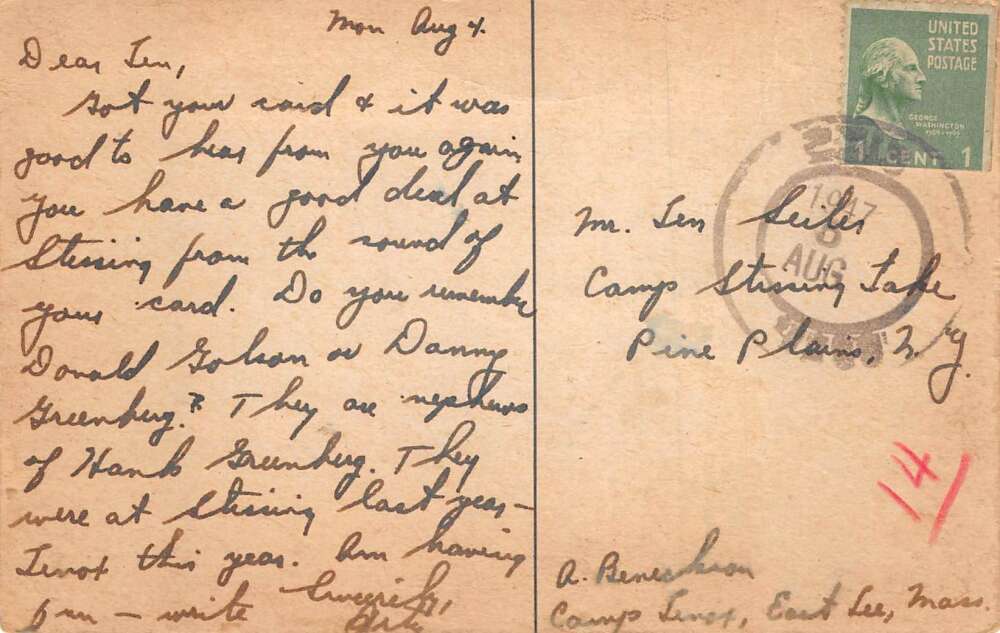 Mon Aug 4.
Dear Len,
Got your card & it was
good to hear from you again
You have a good deal at
Stissing from the sound of
your card. Do you remember
Donald Golson or Danny
Greenberg? They are nephews
of Hank Greenberg. They
were at Stissing last year –
Lenox this year. Am having
fun – write Sincerely,
Art
UNITED
STATES
POSTAGE
GEORGE
WASHINGTON
1 CENT 1
1947
AUG
Mr. Len Seiler
Camp Stissing Lake
Pine Plains, N.Y.
14
A.
Camp Lenox, East Lee, Mass.